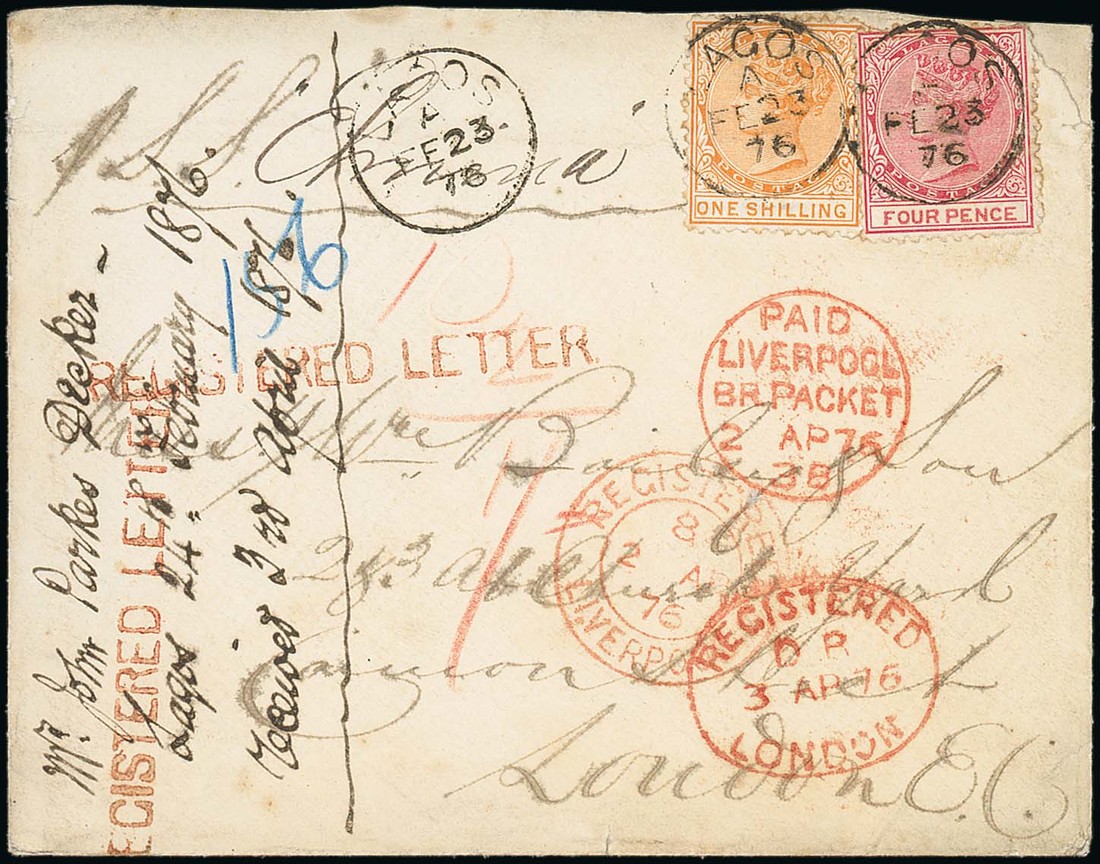 LAGOS
A
FE 23
76
LAGOS
A
FE 23
76
LAGOS
A
FE 23
76
LAGOS
POSTAGE
ONE SHILLING
POSTAGE
FOUR PENCE
p S.S.
156
REGISTERED LETTER
REGISTERED LETTER
Mr. John Parkes Decker -
Lagos 24th February 1876.
received 3rd April 1876.
PAID
LIVERPOOL
BR. PACKET
2 AP 76
3B
REGISTERED
8
2 AP
76
LIVERPOOL
REGISTERED
3 AP 76
LONDON
Messrs Wm & Son
Abchurch Yard
Cannon Street
London E.C.